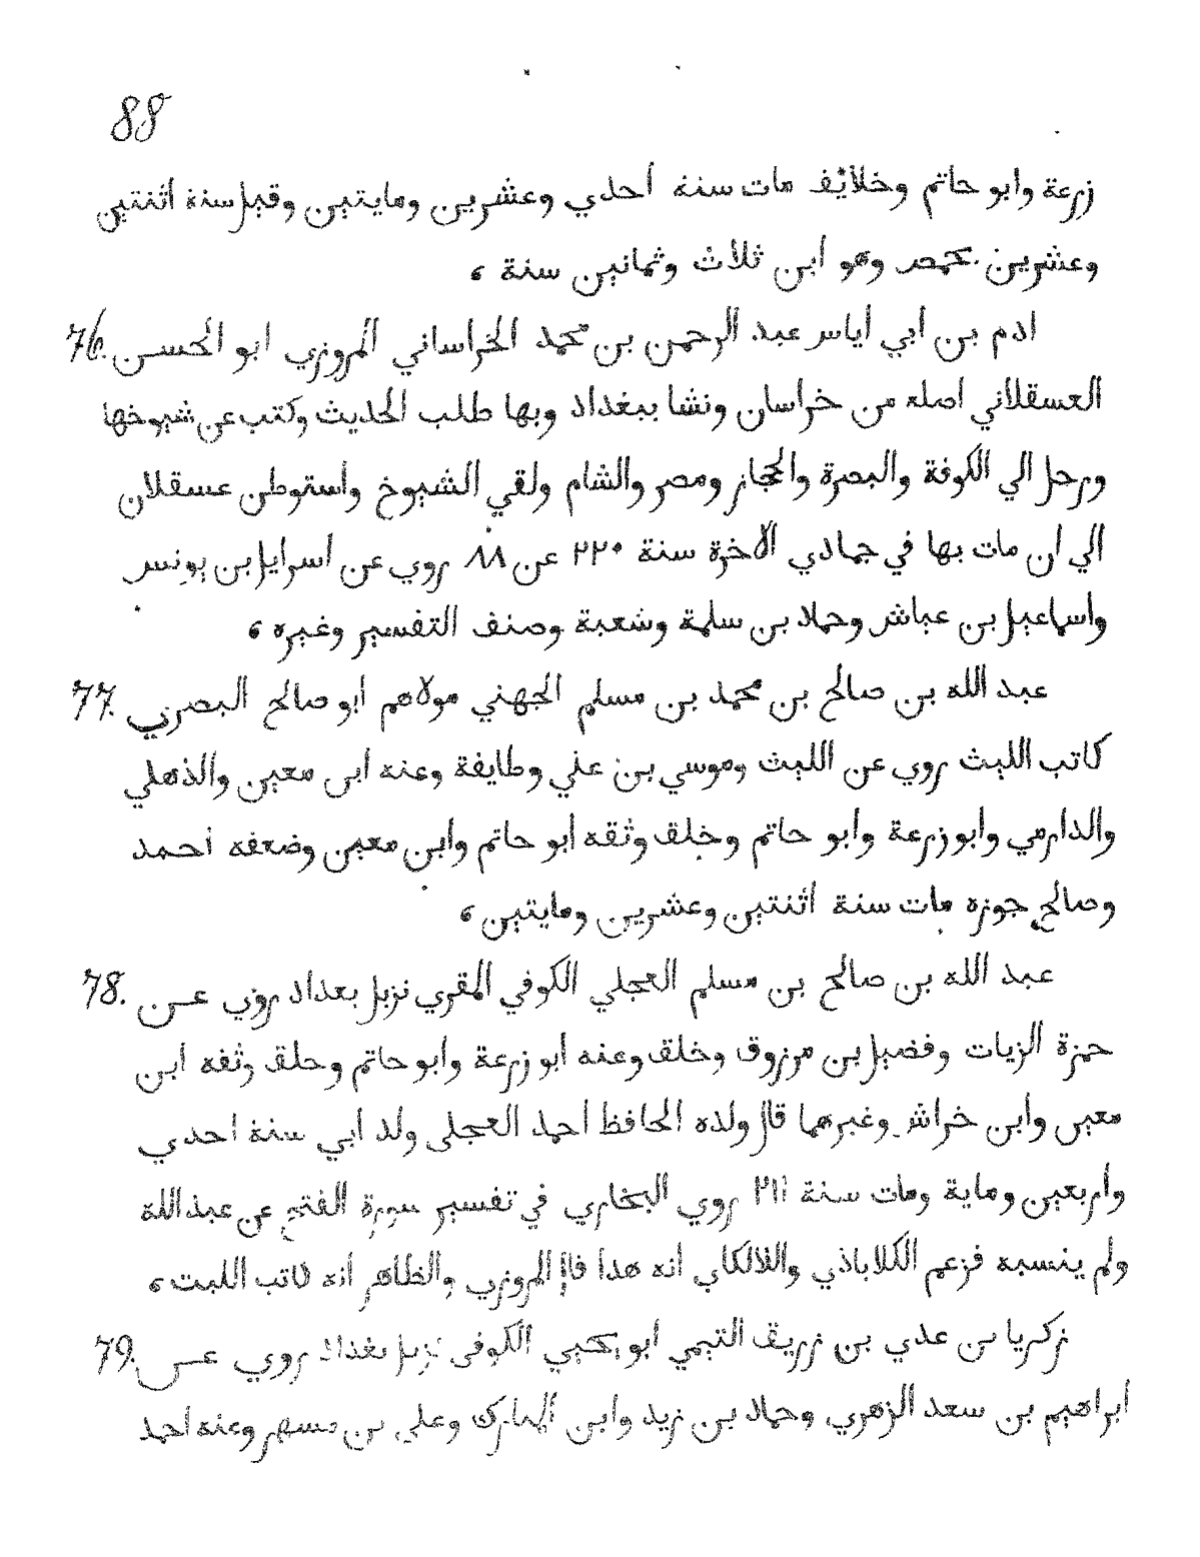 88
زرعة وابو حاتم وخلائف مات سنة أحدي وعشرين ومايتين وقيل سنة أثنتين
وعشرين بحمص وهو أبن ثلاث وثمانين سنة ،
76. ادم بن أبي أياس عبد الرحمن بن محمد الخراساني المروزي ابو الحسن
العسقلاني اصله من خراسان ونشا ببغداد وبها طلب الحديث وكتب عن شيوخها
ورحل الي الكوفة والبصرة والحجاز ومصر والشام ولقي الشيوخ وأستوطن عسقلان
الي ان مات بها في جمادي الاخرة سنة ٢٢٠ عن ٨٨ روي عن أسرايل بن يونس
واسماعيل بن عياش وحماد بن سلمة وشعبة وصنف التفسير وغيره ،
77. عبد الله بن صالح بن محمد بن مسلم الجهني مولاهم ابو صالح البصري
كاتب الليث روي عن الليث وموسي بن علي وطايفة وعنه ابن معين والذهلي
والدارمي وابو زرعة وابو حاتم وخلق وثقه أبو حاتم وابن معين وضعفه أحمد
وصالح جوزه مات سنة أثنتين وعشرين ومايتين ،
78. عبد الله بن صالح بن مسلم العجلي الكوفي المقري نزيل بعداد روي عن
حمزة الزيات وفضيل بن مرزوق وخلق وعنه ابو زرعة وابو حاتم وحلق وثقه أبن
معين وأبن خراش وغيرهما قال ولده الحافظ أحمد العجلى ولد أبي سنة احدي
واربعين وماية ومات سنة ٢١١ روي البخاري في تفسير سورة الفتح عن عبد الله
ولم ينسبه فزعم الكلاباذي واللالكاي أنه هدا قال المروزي والظاهر أنه كاتب الليث ،
79. زكريا بن عدي بن زريق التيمي أبو يحيي الكوفى نزيل بغداد روي عن
أبراهيم بن سعد الزهري وحماد بن زيد وابن المبارك وعلي بن مسهر وعنه أحمد